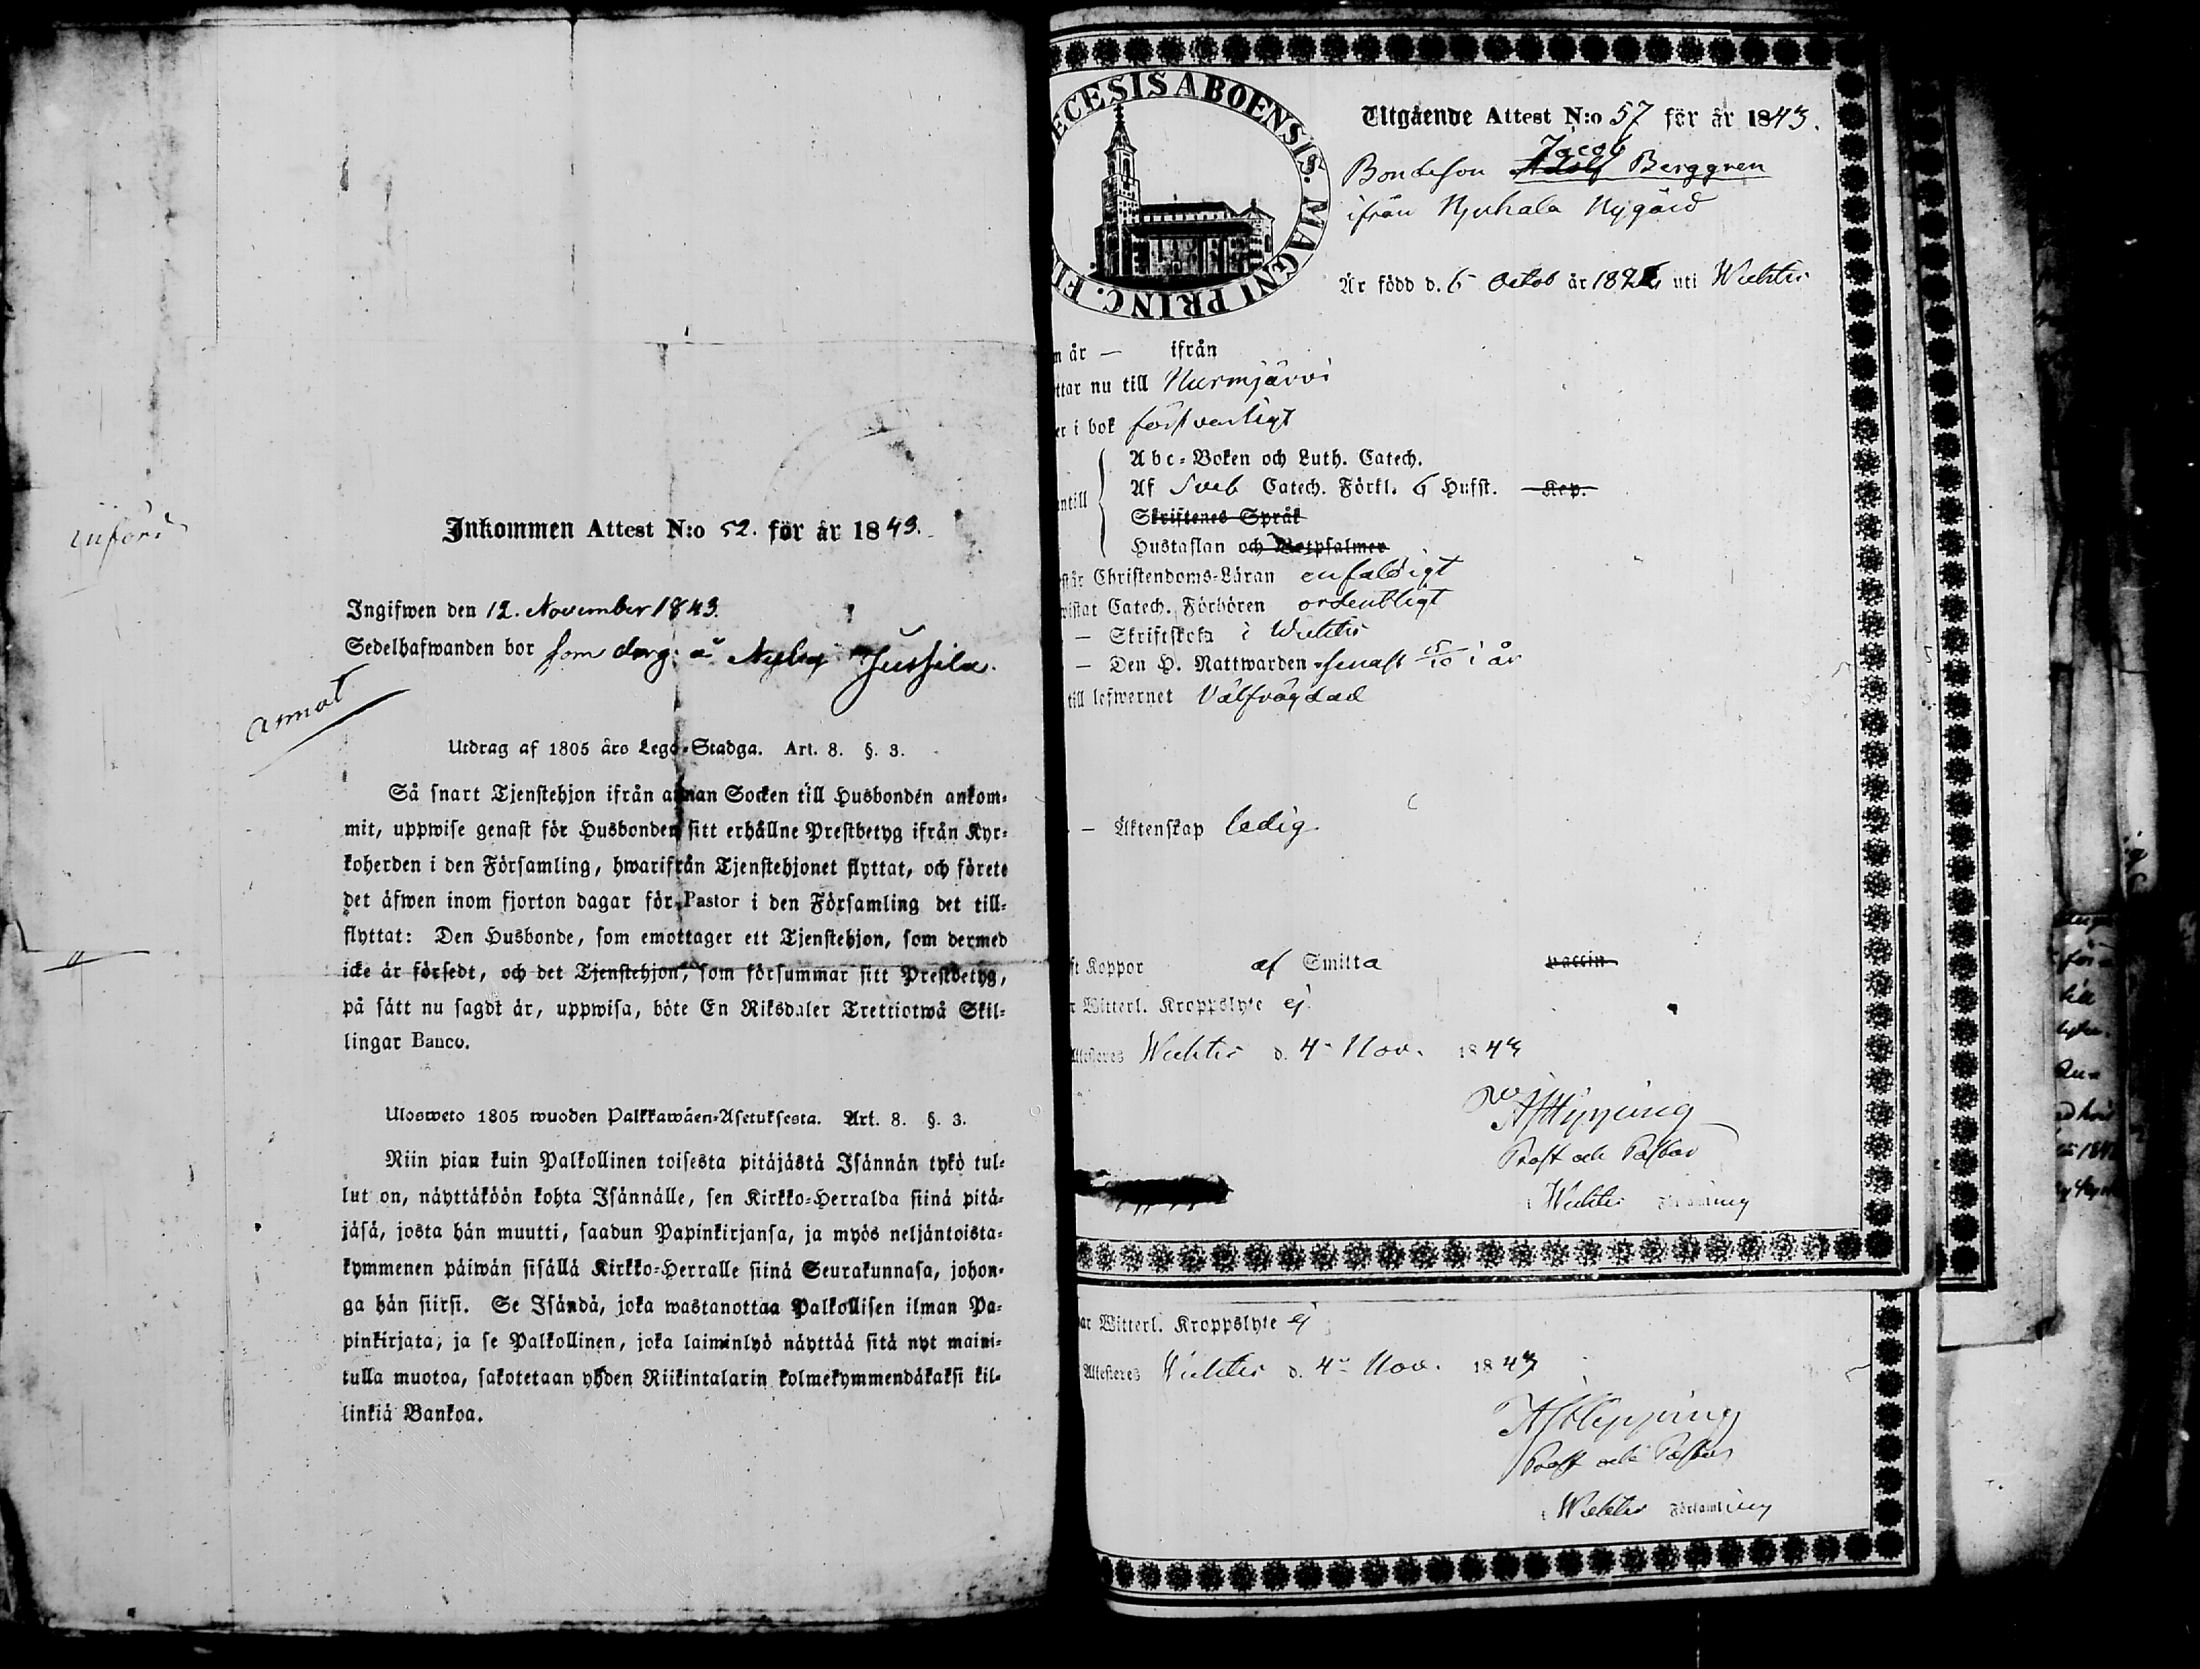 införd
Inkommen Attest N:o 52. för år 1843.
Ingifwen den 12. November 1843.
Sedelhafwanden bor som dreng å Nyby Jussila.
annot
Utdrag af 1805 års Lego-Stadga. Art. 8. §. 3.
Så snart Tjenstehjon ifrån annan Socken till Husbonden ankom-
mit, uppwise genast för Husbonden sitt erhållne Prestbetyg ifrån Kyr-
koherden i den Församling, hwarifrån Tjenstehjonet flyttat, och förete
det äfwen inom fjorton dagar för Pastor i den Församling det till-
flyttat: Den Husbonde, som emottager ett Tjenstehjon, som dermed
icke är försedt, och det Tjenstehjon, som försummar sitt Prestbetyg,
på sätt nu sagdt är, uppwisa, böte En Riksdaler Trettiotwå Skil-
lingar Banco.
Ulosweto 1805 wuoden Palkkawäen-Asetuksesta. Art. 8. §. 3.
Niin pian kuin Palkollinen toisesta pitäjästä Isännän tykö tul-
lut on, näyttäköön kohta Isännälle, sen Kirkko-Herralda siinä pitä-
jäsä, josta hän muutti, saadun Papinkirjansa, ja myös neljäntoista-
kymmenen päiwän sisällä Kirkko-Herralle siinä Seurakunnasa, johon-
ga hän siirsi. Se Isändä, joka wastanottaa Palkollisen ilman Pa-
pinkirjata, ja se Palkollinen, joka laiminlyö näyttää sitä nyt maini-
tulla muotoa, sakotetaan yhden Riikintalarin kolmekymmendäkaksi kil-
linkiä Bankoa.
ECESIS ABOENSIS. MAGNI PRINC. FI
Utgående Attest N:o 57 för år 1843.
Jacob
Bondeson Adolf Berggren
ifrån Hyvhala Nygård
Är född d. 6 Octob år 182 uti Wichtis
n år — ifrån
ttar nu till Nurmijärvi
er i bok försvarligt
Abc-Boken och Luth. Catech.
ntill Af Sveb Catech. Förkl. 6 Hufst. Rep.
Skriftenes Språk
Hustaflan och Botpsalmer
står Christendoms-Läran enfaldigt
wistat Catech. Förhören ordentligt
— Skriftskola i Wichtis
— Den H. Nattwarden senast 15/10 i år
till lefwernet Välfrägdad
— Äktenskap ledig
ft Koppor af Smitta vaccin
r Witterl. Kroppslyte ej.
Attesteres Wichtis d. 4 Nov. 1843
AJHipping
Prost och Pastor
i Wichtis Församling
ar Witterl. Kroppslyte ej
Attesteres Wichtis d. 4 Nov. 1843
AJHipping
Prost och Pastor
i Wichtis Församling